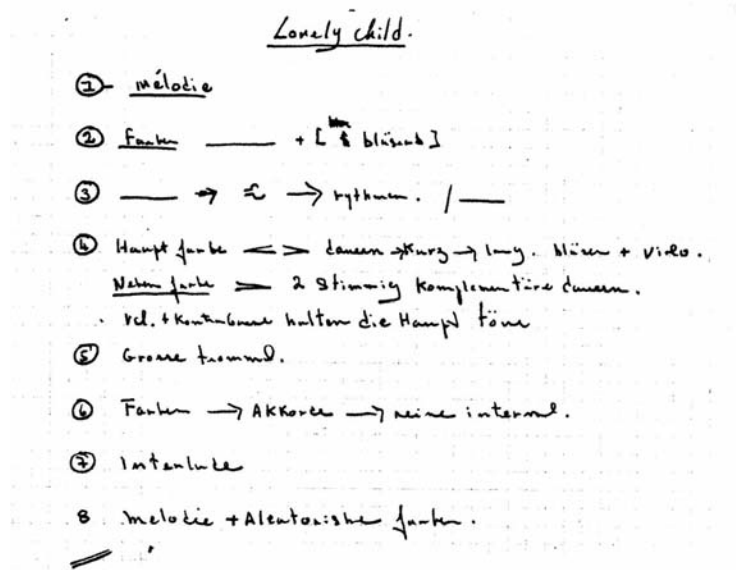 Lonely child.
① - mélodie
② Farben ——— + [ bläsend ]
③ ——— → ≈ → rythmen. / ———
④ Haupt farbe < > dauern → Kurz → lang. bläser + vibr.
Neben farbe > 2 Stimmig Komplementäre dauern.
vcl. + Kontrabasse halten die Haupt töne
⑤ Grosse trommel.
⑥ Farben → AKKorde → reine intervall.
⑦ Interlude
8 Melodie + Aleatorishe farben.